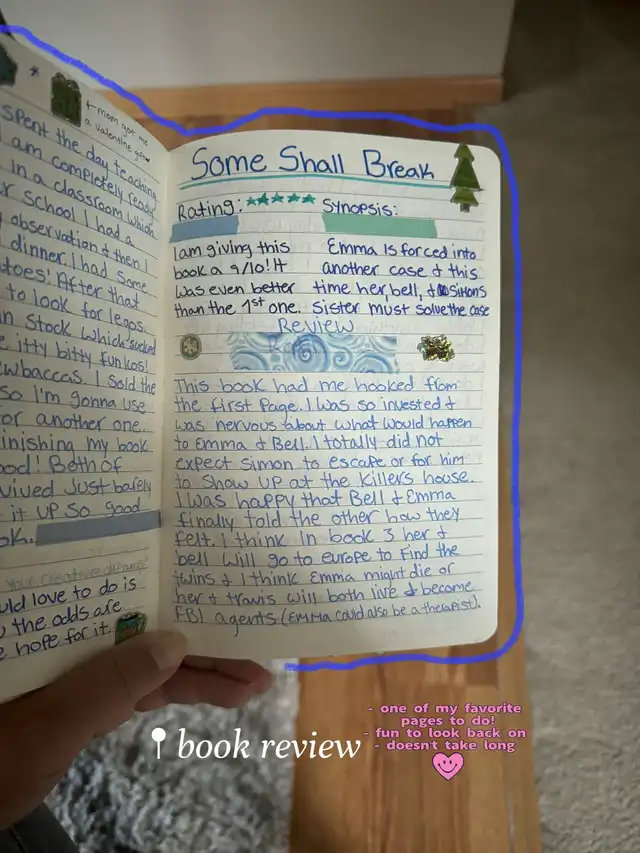 + mom got me
a valentine gift
spent the day teaching
I am completely ready
in a classroom which
r school I had a
observation & then I
dinner. I had some
toes! After that
to look for legos.
n stock which sucked
e itty bitty funkos!
ewbaccas. I sold the
so I'm gonna use
or another one.
inishing my book
ood! Both of
vived Just barely
it up so good
ok.
your creative dreams
uld love to do is
the odds are
e hope for it.
Some Shall Break
Rating:
I am giving this
book a 9/10! It
was even better
than the 1st one.
Synopsis:
Emma is forced into
another case & this
time her, bell, & simons
sister must solve the case
Review
This book had me hooked from
the first page. I was so invested &
was nervous about what would happen
to Emma & Bell. I totally did not
expect Simon to escape or for him
to show up at the killers house.
I was happy that Bell & Emma
finally told the other how they
felt. I think in book 3 her &
bell will go to europe to find the
twins & I think Emma might die or
her & travis will both live & become
FBI agents (Emma could also be a therapist).
book review
- one of my favorite
pages to do!
- fun to look back on
- doesn't take long